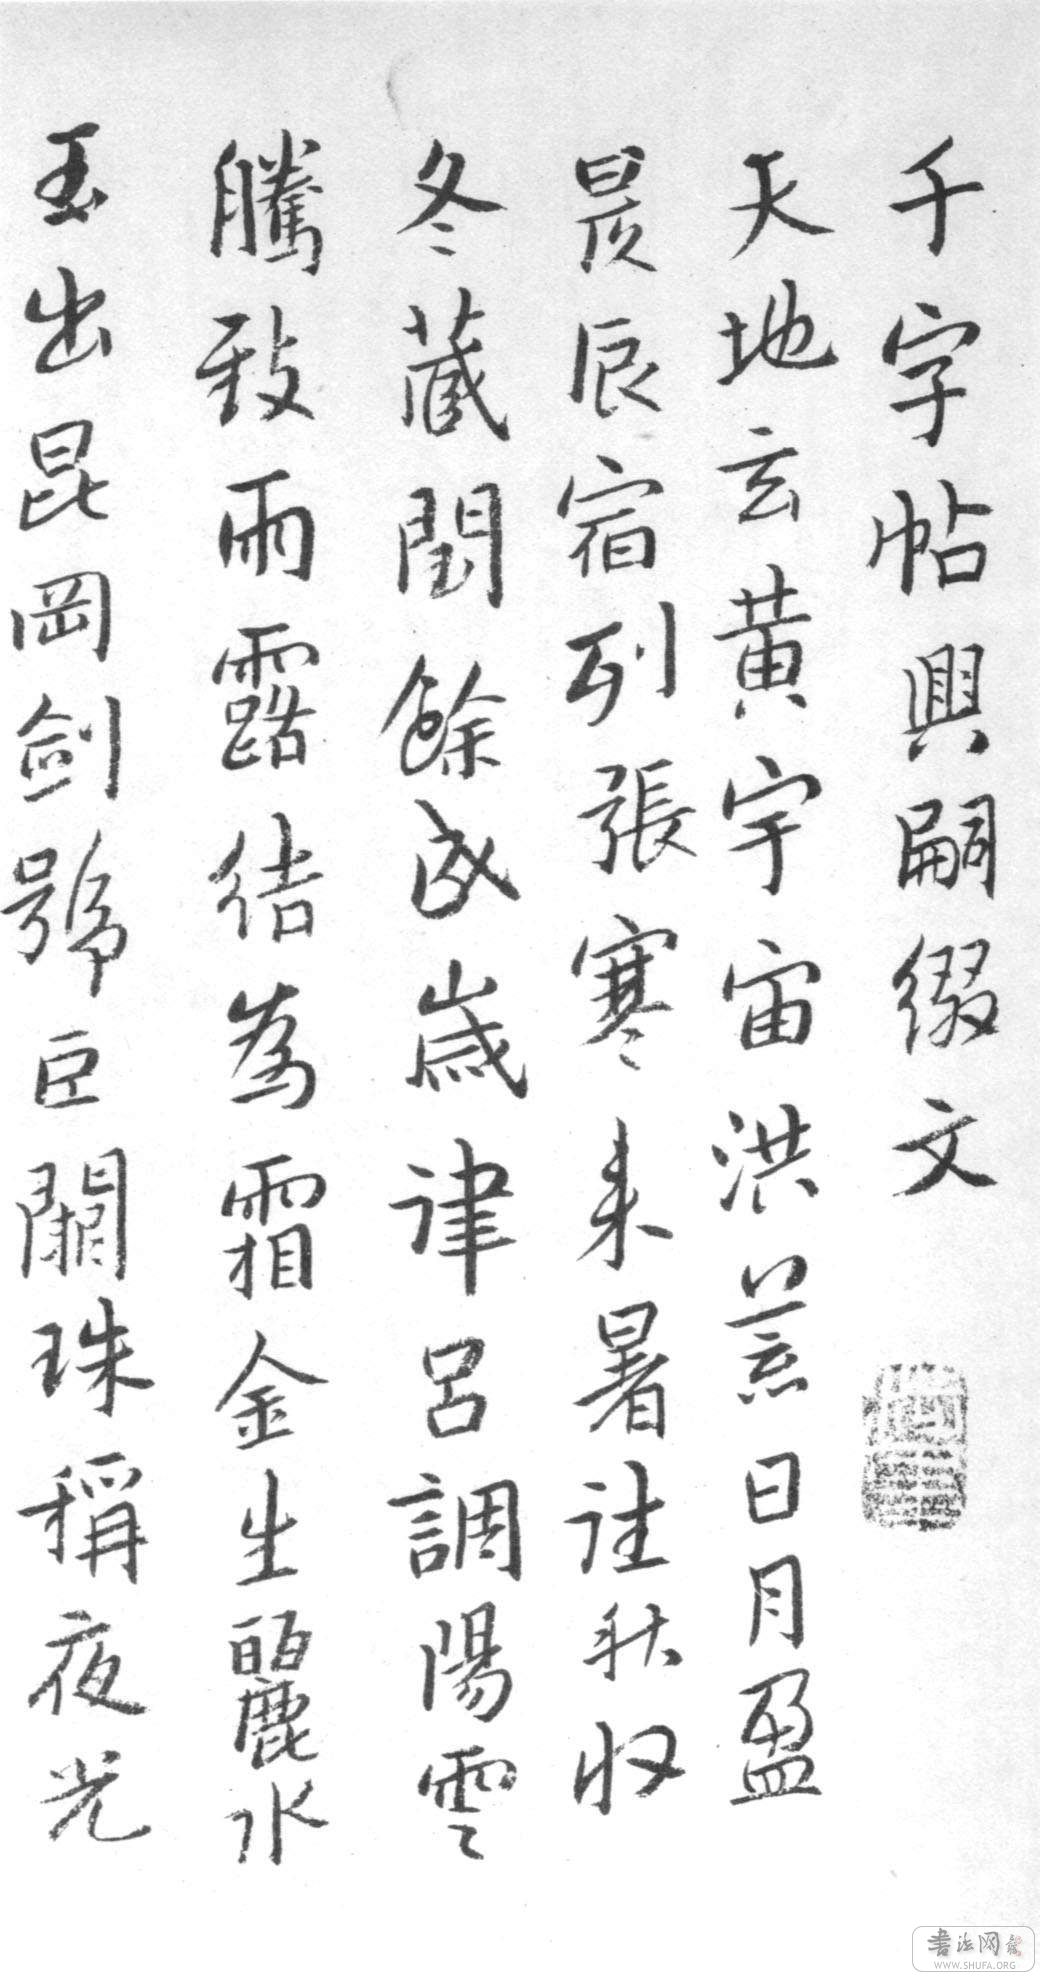 千字帖興嗣綴文
天地玄黄宇宙洪荒日月盈
昃辰宿列張寒来暑往秋収
冬蔵閏餘成歳律呂調陽雲
騰致雨露結為霜金生麗水
玉出昆岡剑號巨闕珠稱夜光
書法网
WWW.SHUFA.ORG